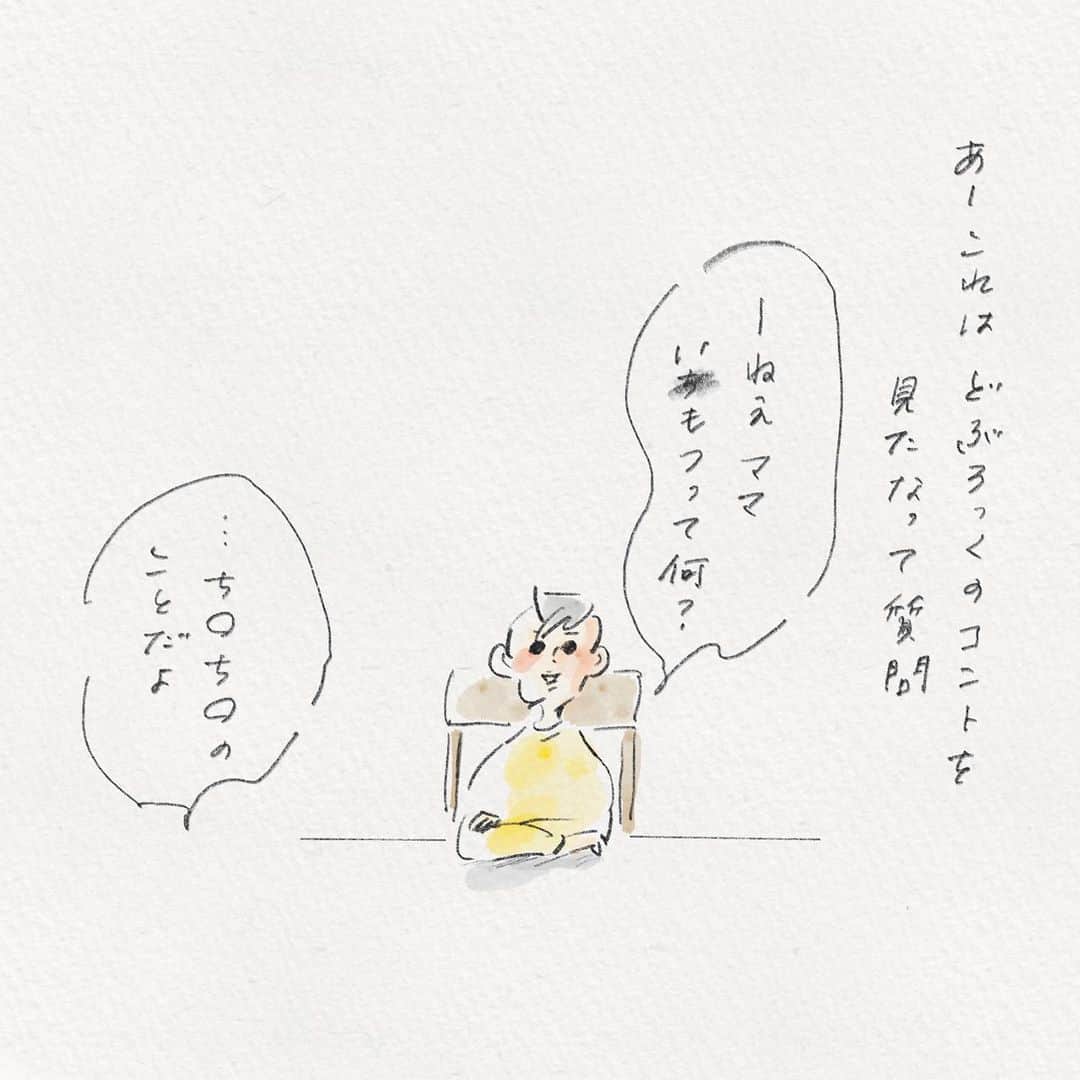 あーこれはどぶろっくのコントを
見たなって質問
ーねえママ
いちもつって何?
…ち〇ち〇の
ことだよ